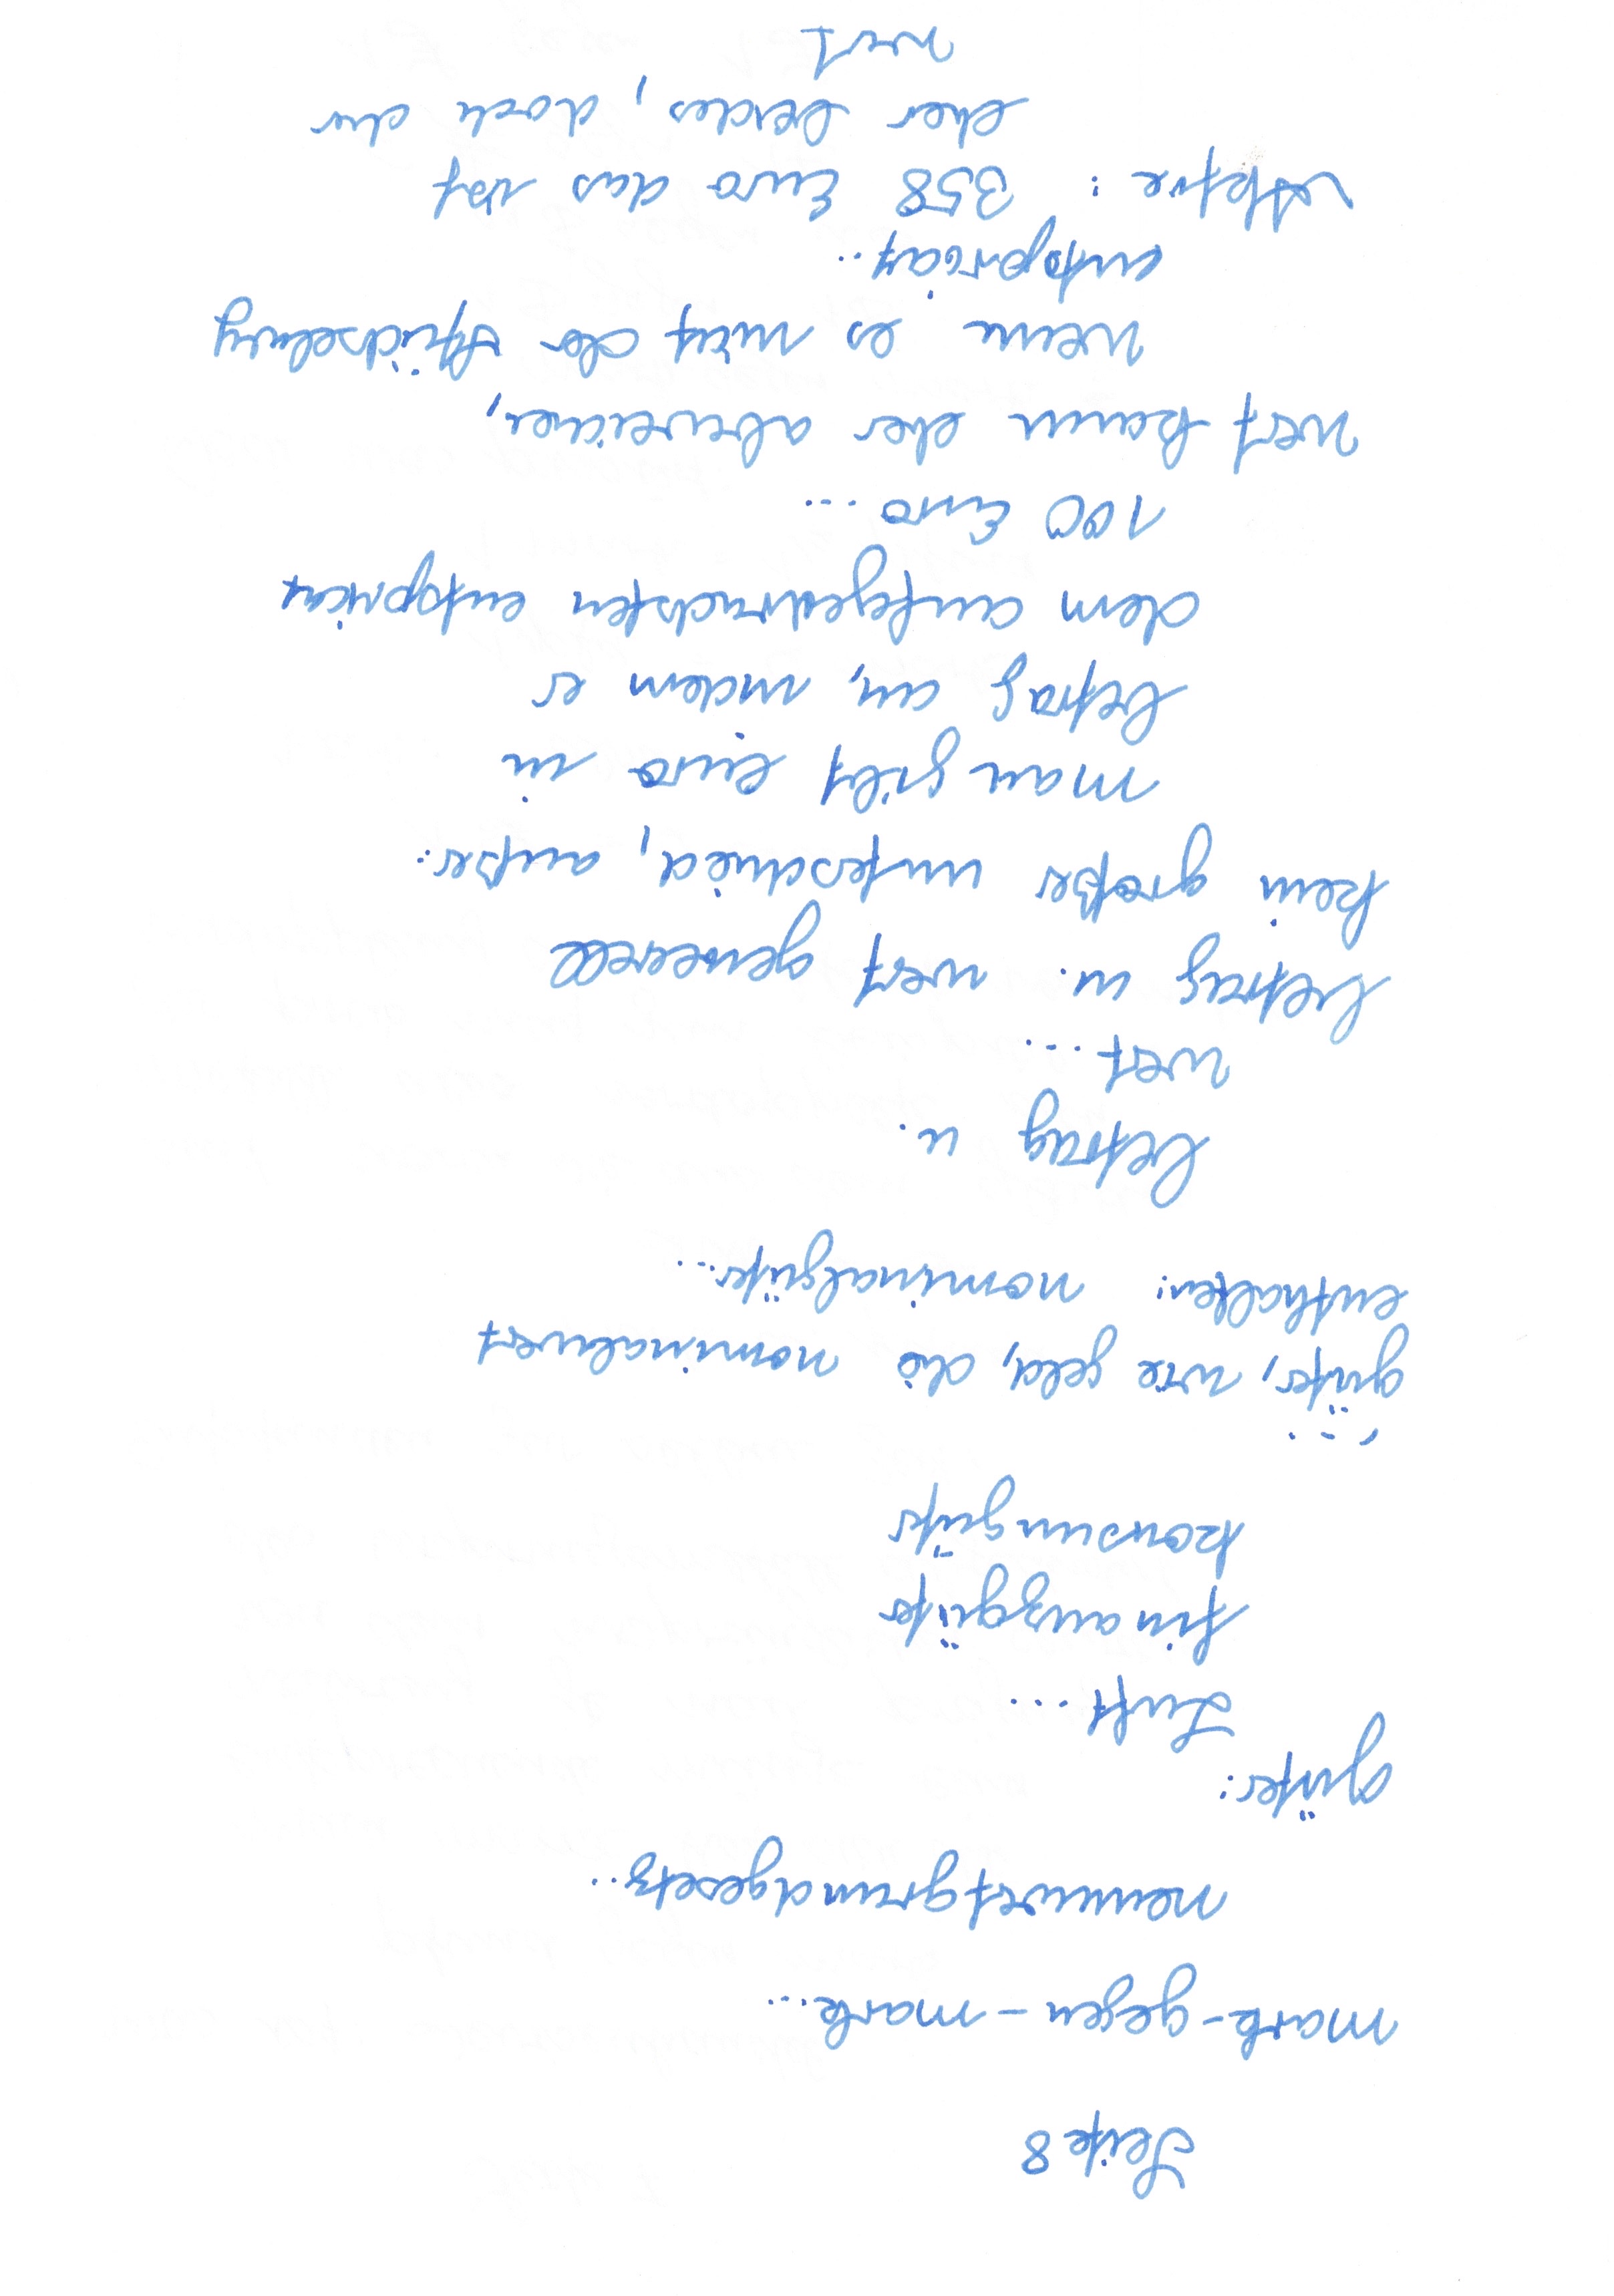 Seite 8
mark-gegen-mark...
nennwertgrundgesetz...
güter:
Luft...
finanzgüter
konsumgüter
...
güter, wie geld, die nominalwert
enthalten: nominalgüter...
betrag u.
wert...
betrag u. wert generell
kein großer unterschied, außer:
man gibt euro in
betrag an, indem er
dem aufgedruckten entspricht
100 Euro...
wert kann eher abweichen,
wenn es nicht der Stückelung
entspricht...
Aktie: 358 Euro das ist
eher beides, doch der
wert